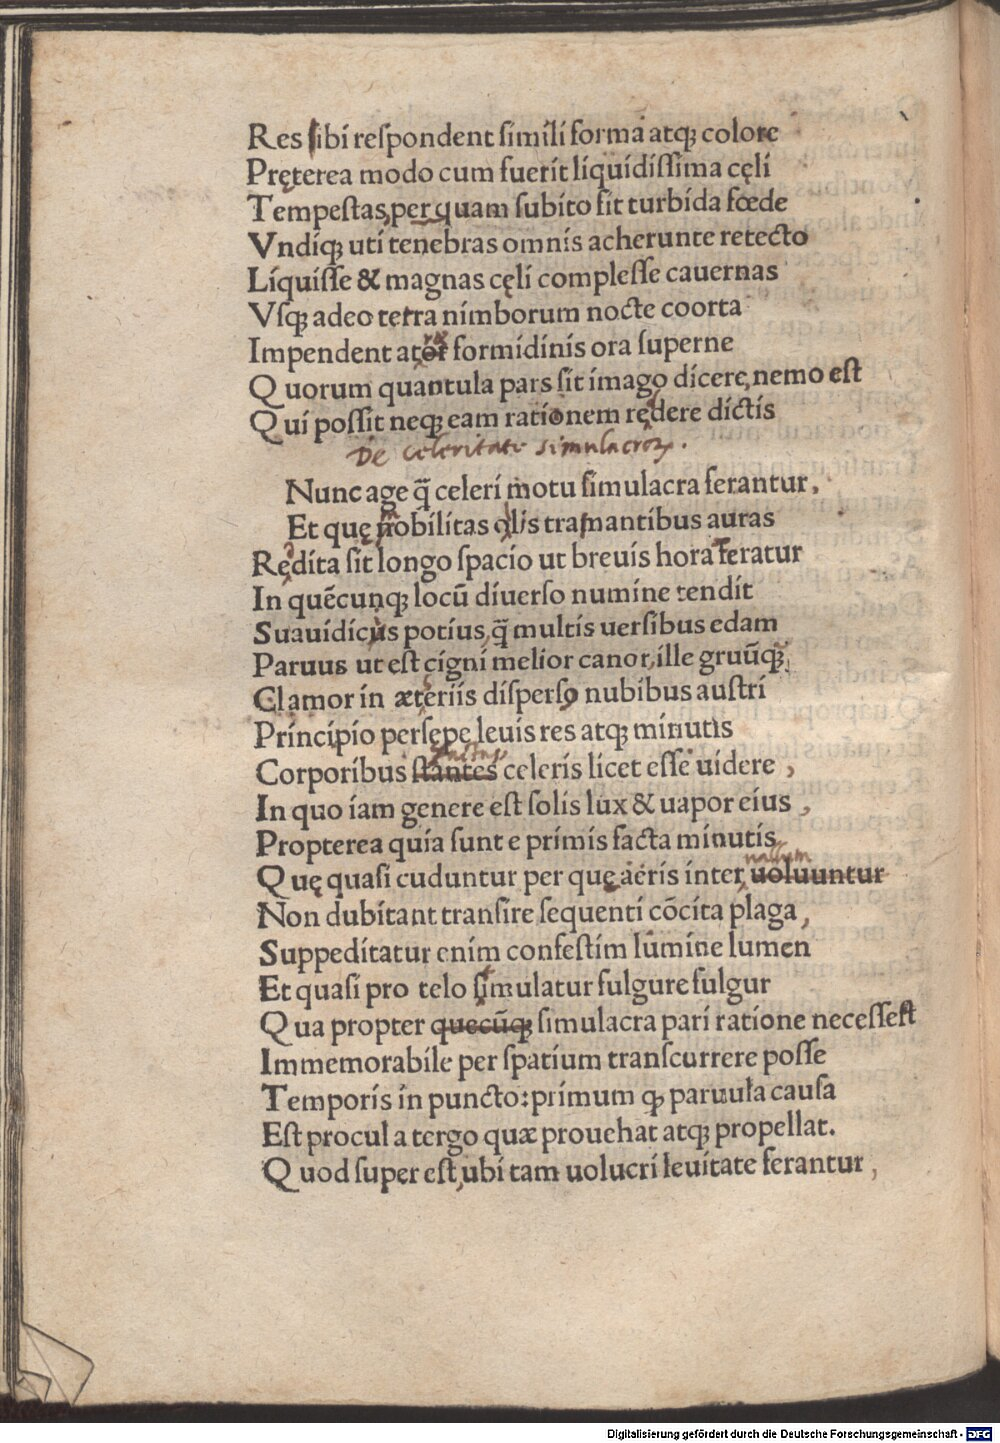 Res ſibi reſpondent ſimili forma atqꝫ colore
Pręterea modo cum fuerit liquidiſſima cęli
Tempeſtas, per quam ſubito ſit turbida fœde
Vndiqꝫ uti tenebras omnis acherunte retecto
Liquiſſe & magnas cęli compleſſe cauernas
Vſqꝫ adeo tetra nimborum nocte coorta
Impendent formidinis ora ſuperne
Quorum quantula pars ſit imago dicere, nemo eſt
Qui poſſit neqꝫ eam rationem rędere dictis
De celeritate simulacroꝝ.
Nunc age q̄ celeri motu ſimulacra ferantur,
Et quę mobilitas ollis tranantibus auras
Redita ſit longo ſpacio ut breuis hora feratur
In quēcunqꝫ locū diuerſo numine tendit
Suauidicis potius, q̄ multis uerſibus edam
Paruus ut eſt cigni melior canor, ille gruūqꝫ
Clamor in ætheriis diſperſo nubibus auſtri
Principio perſępe leuis res atqꝫ minutis
factas
Corporibus ſtantes celeris licet eſſe uidere,
In quo iam genere eſt ſolis lux & uapor eius,
Propterea quia ſunt e primis facta minutis,
uallum
Quę quaſi cuduntur per quę aeris inter, uoluuntur
Non dubitant tranſire ſequenti cōcita plaga,
Suppeditatur enim confeſtim lumine lumen
Et quaſi pro telo ſtimulatur fulgure fulgur
Qua propter quecūqꝫ ſimulacra pari ratione neceſſeſt
Immemorabile per ſpatium tranſcurrere poſſe
Temporis in puncto: primum qꝫ paruula cauſa
Eſt procul a tergo quæ prouehat atqꝫ propellat.
Quod ſuper eſt, ubi tam uolucri leuitate ferantur,
Digitalisierung gefördert durch die Deutsche Forschungsgemeinschaft - DFG